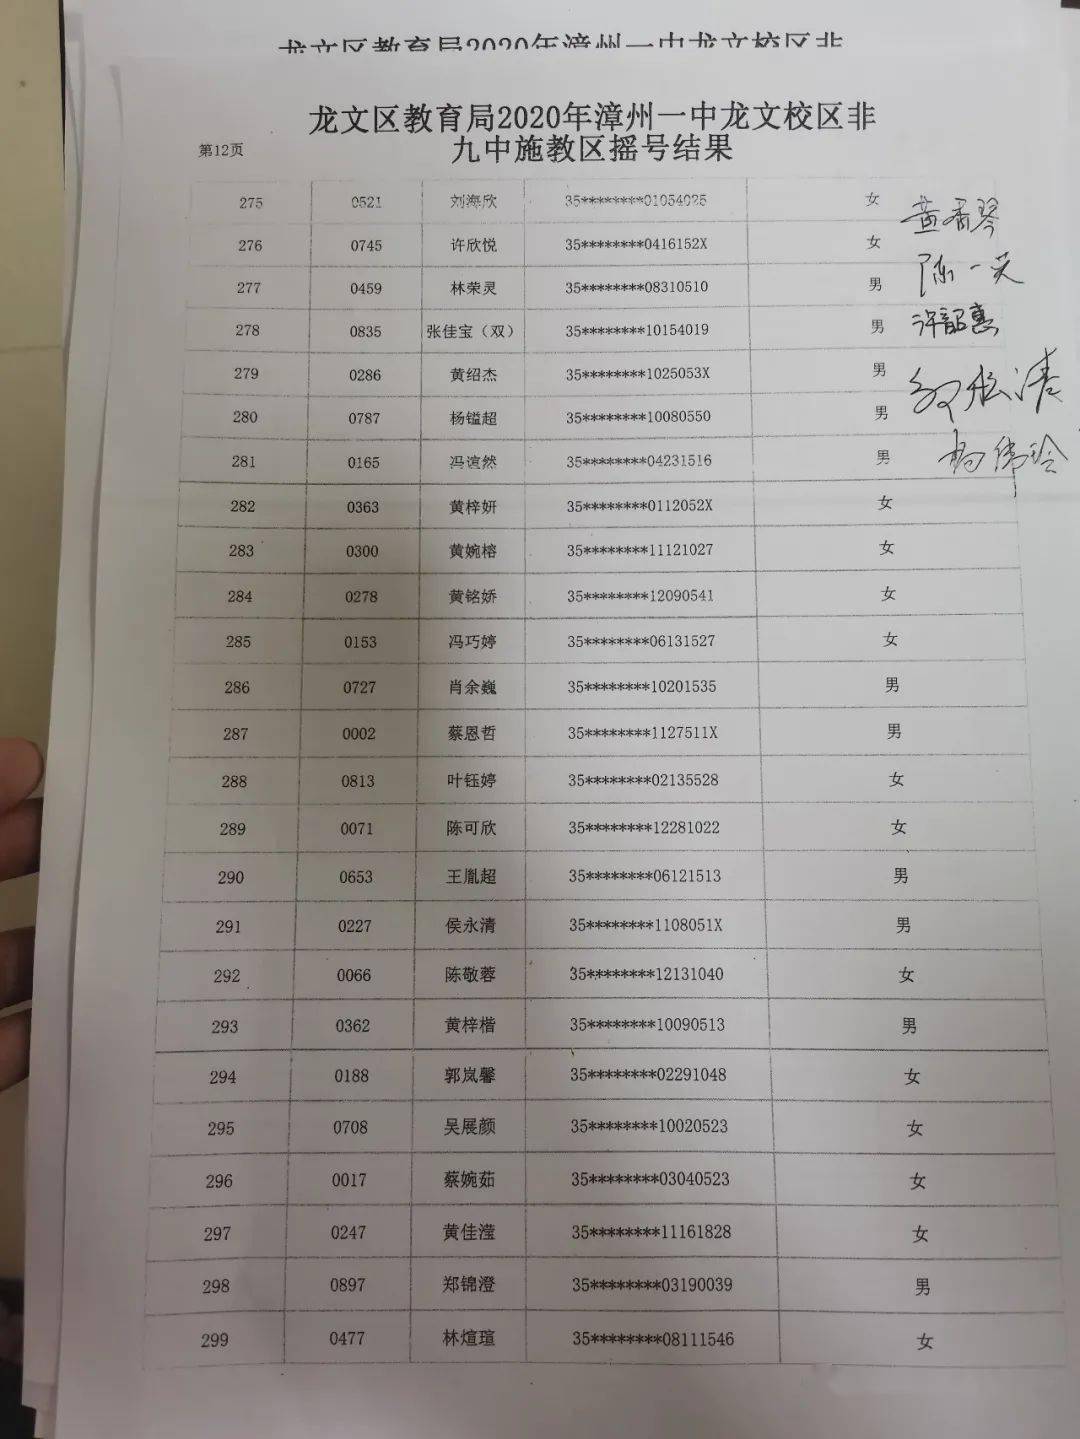 龙文区教育局2020年漳州一中龙文校区非
龙文区教育局2020年漳州一中龙文校区非
九中施教区摇号结果
第12页
275 0521 刘海欣 35********01054025 女
276 0745 许欣悦 35********0416152X 女
277 0459 林荣灵 35********08310510 男
278 0835 张佳宝（双） 35********10154019 男
279 0286 黄绍杰 35********1025053X 男
280 0787 杨镒超 35********10080550 男
281 0165 冯谊然 35********04231516 男
282 0363 黄梓妍 35********0112052X 女
283 0300 黄婉榕 35********11121027 女
284 0278 黄铭娇 35********12090541 女
285 0153 冯巧婷 35********06131527 女
286 0727 肖余巍 35********10201535 男
287 0002 蔡恩哲 35********1127511X 男
288 0813 叶钰婷 35********02135528 女
289 0071 陈可欣 35********12281022 女
290 0653 王胤超 35********06121513 男
291 0227 侯永清 35********1108051X 男
292 0066 陈敬蓉 35********12131040 女
293 0362 黄梓楷 35********10090513 男
294 0188 郭岚馨 35********02291048 女
295 0708 吴展颜 35********10020523 女
296 0017 蔡婉茹 35********03040523 女
297 0247 黄佳滢 35********11161828 女
298 0897 郑锦澄 35********03190039 男
299 0477 林煊瑄 35********08111546 女
许韶惠